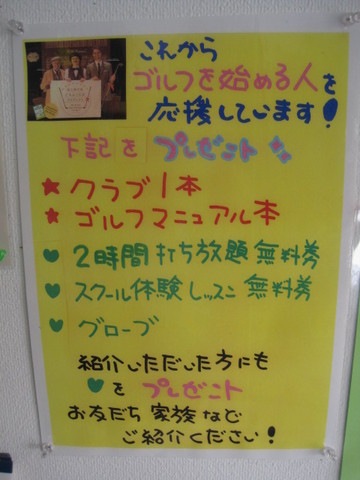 これから
ゴルフを始める人を
応援しています!
下記をプレゼント
★クラブ1本
★ゴルフマニュアル本
♥2時間打ち放題無料券
♥スクール体験レッスン無料券
♥グローブ
紹介いただいた方にも
♥をプレゼント
お友だち家族など
ご紹介ください!